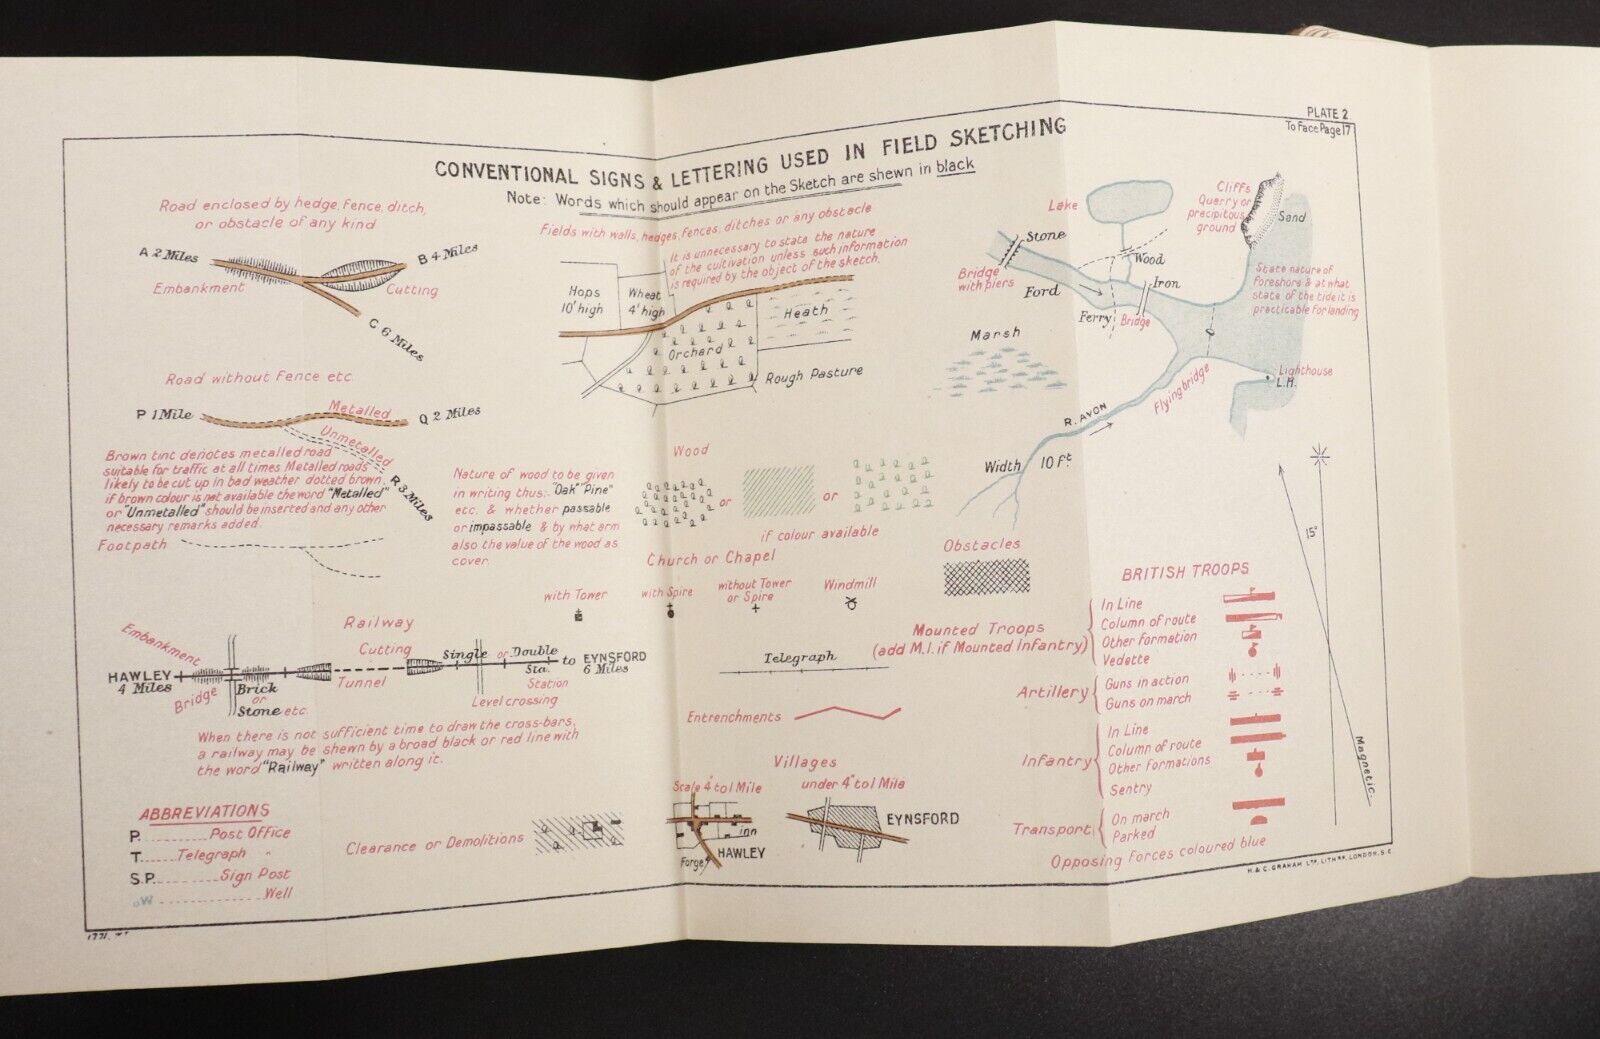 PLATE 2
To Face Page 17
CONVENTIONAL SIGNS & LETTERING USED IN FIELD SKETCHING
Note: Words which should appear on the Sketch are shewn in black
Road enclosed by hedge, fence, ditch,
or obstacle of any kind
A 2 Miles
B 4 Miles
Embankment
Cutting
C 6 Miles
Road without Fence etc.
P 1 Mile
Metalled
Q 2 Miles
Unmetalled
R 3 Miles
Brown tint denotes metalled road
suitable for traffic at all times Metalled roads
likely to be cut up in bad weather dotted brown.
if brown colour is not available the word "Metalled"
or "Unmetalled" should be inserted and any other
necessary remarks added.
Footpath
Fields with walls, hedges, fences, ditches or any obstacle
It is unnecessary to state the nature
of the cultivation unless such information
is required by the object of the sketch.
Hops
10' high
Wheat
4' high
Heath
Orchard
Rough Pasture
Wood
Nature of wood to be given
in writing thus: "Oak" "Pine"
etc. & whether passable
or impassable & by what arm
also the value of the wood as
cover.
or
or
if colour available
Church or Chapel
with Tower
with Spire
without Tower
or Spire
Windmill
Lake
Cliffs
Quarry or
precipitous
ground
Sand
Stone
Bridge
with piers
Wood
Ford
Iron
Ferry
Bridge
State nature of
foreshore & at what
state of the tide it is
practicable for landing
Marsh
Lighthouse
L.H.
Flying bridge
R. AVON
Width 10 ft.
Obstacles
15°
Magnetic
Railway
Embankment
Cutting
Single or Double
HAWLEY
4 Miles
Bridge
Brick
or
Stone etc.
Tunnel
Sta.
Station
Level crossing
to EYNSFORD
6 Miles
When there is not sufficient time to draw the cross-bars,
a railway may be shewn by a broad black or red line with
the word "Railway" written along it.
Telegraph
Entrenchments
Villages
Scale 4" to 1 Mile
under 4" to 1 Mile
inn
HAWLEY
Forge
EYNSFORD
Clearance or Demolitions
ABBREVIATIONS
P. Post Office
T. Telegraph "
S.P. Sign Post
W. Well
BRITISH TROOPS
Mounted Troops
(add M.I. if Mounted Infantry)
In Line
Column of route
Other formation
Vedette
Artillery
Guns in action
Guns on march
Infantry
In Line
Column of route
Other Formations
Sentry
Transport
On march
Parked
Opposing Forces coloured blue
H. & C. GRAHAM LTD, LITHRS, LONDON, S.E.